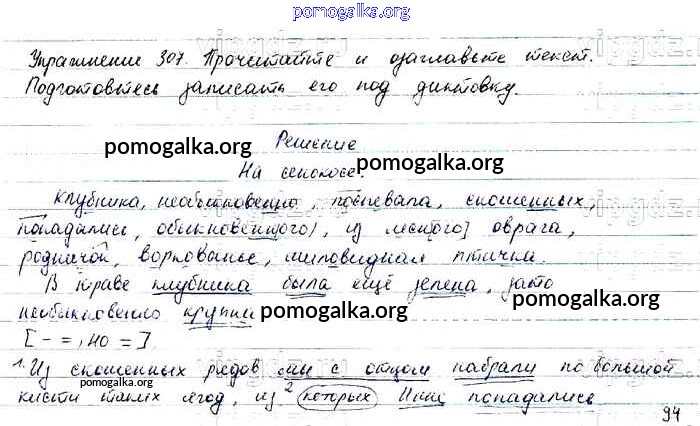 pomogalka.org
Упражнение 307. Прочитайте и озаглавьте текст.
Подготовьтесь записать его под диктовку.
Решение
pomogalka.org pomogalka.org
На сенокосе.
Клубника, необыкновенно, поспевала, скошенных,
попадались, обыкновенного, из лесного оврага,
родничок, воркованье, миловидная птичка.
В траве клубника была ещё зелена, зато
необыкновенно крупна
pomogalka.org pomogalka.org
[- =, но =].
1. Из скошенных рядов мы с отцом набрали по большой
pomogalka.org
кисти таких ягод, из 2 которых иные попадались
94